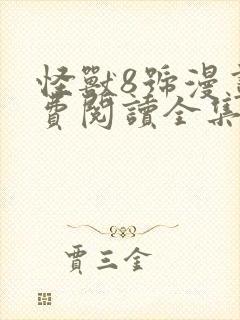 怪獸8號漫
費閱讀全集
賈三金